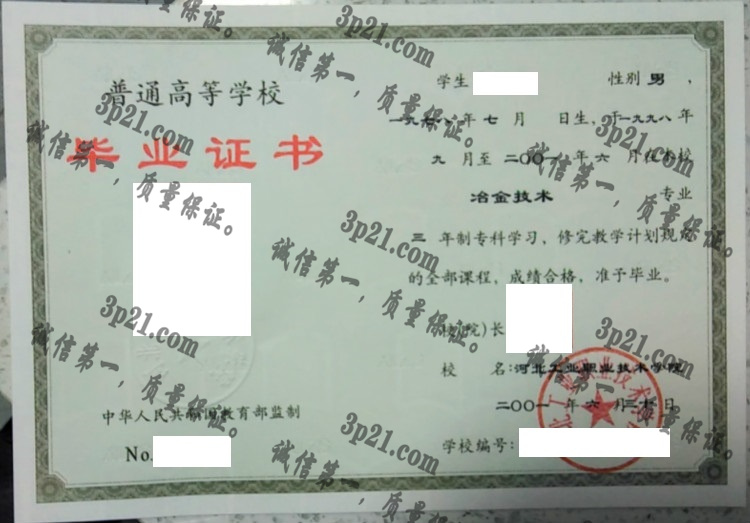 普通高等学校
毕业证书
中华人民共和国教育部监制
No.
学生 性别 男 ，
一九七八年 七 月 日生，于一九九八年
九 月至 二〇〇一年 六 月在本校
冶金技术 专业
三 年制专科学习，修完教学计划规定
的全部课程，成绩合格，准予毕业。
校(院)长
校 名：河北工业职业技术学院
二〇〇一年 六 月三十日
学校编号：
3p21.com
诚信第一，质量保证。
3p21.com
诚信第一，质量保证。
3p21.com
诚信第一，质量保证。
3p21.com
诚信第一，质量保证。
3p21.com
诚信第一，质量保证。
3p21.com
诚信第一，质量保证。
3p21.com
诚信第一，质量保证。
3p21.com
诚信第一，质量保证。